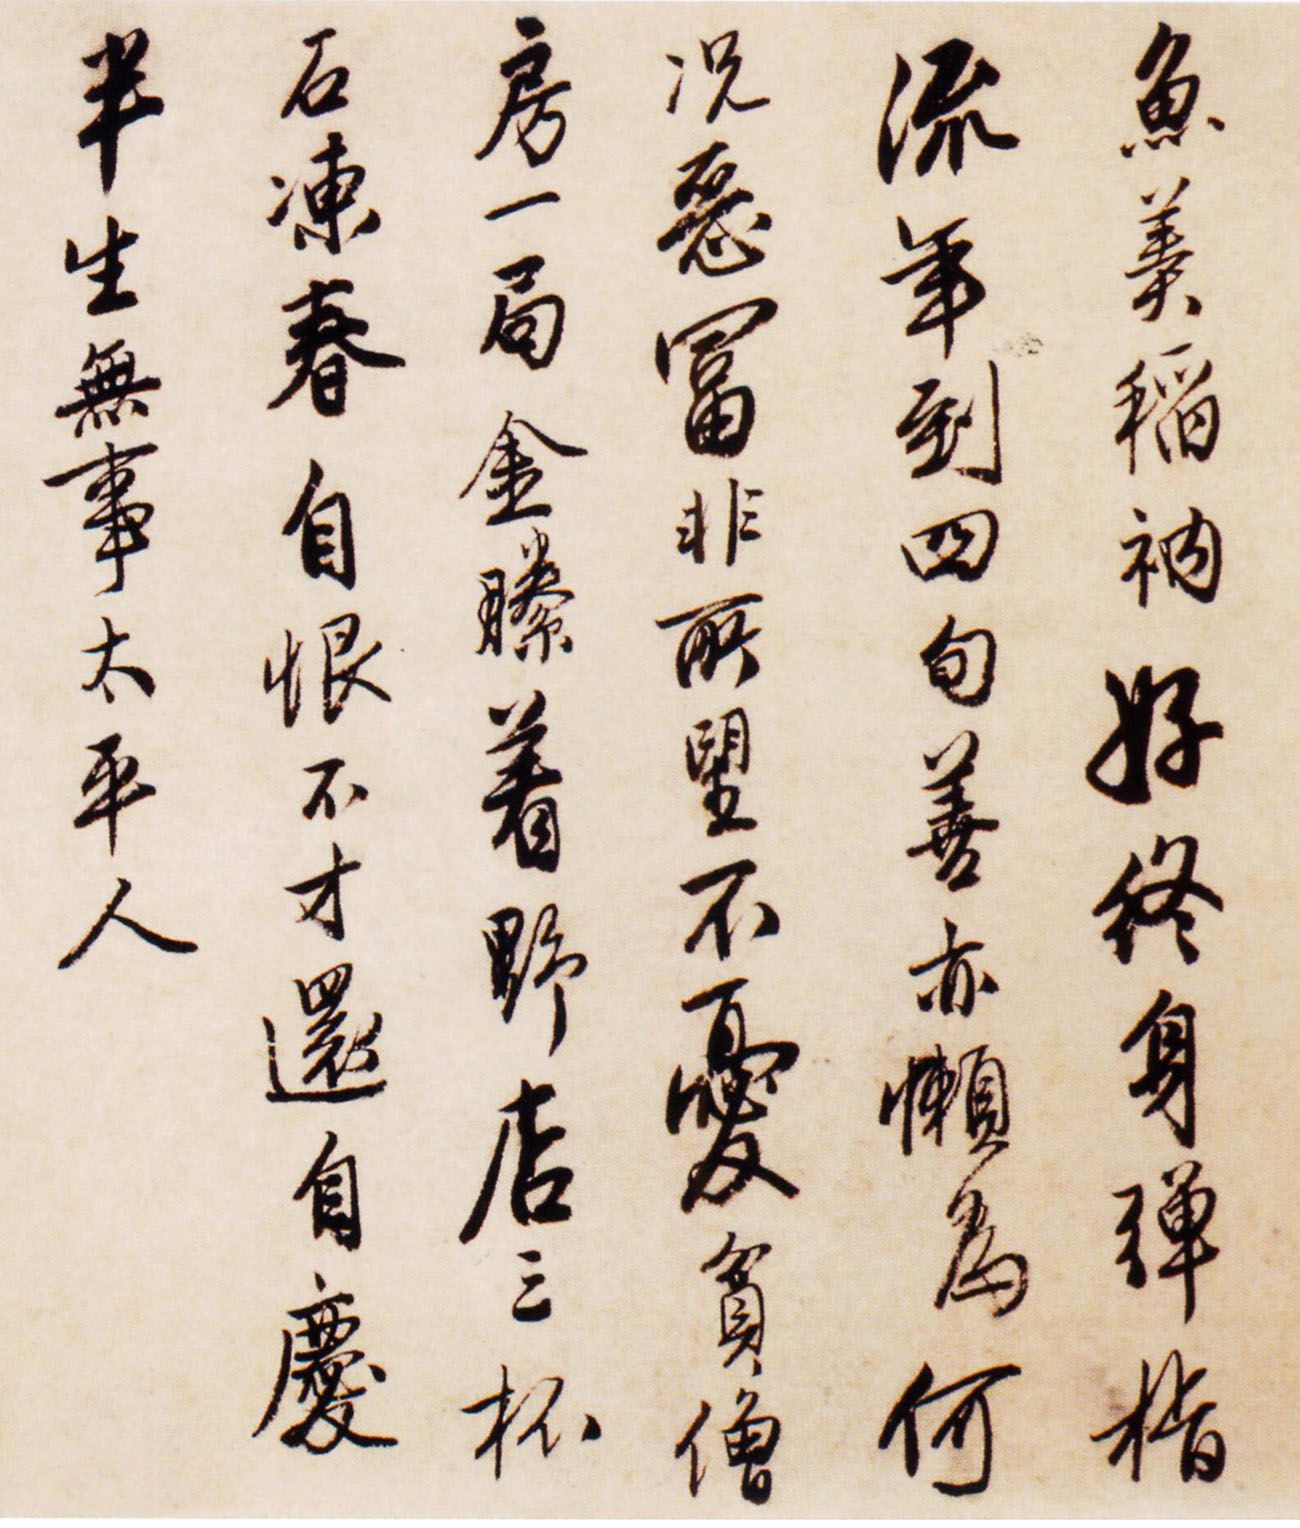 魚羹稻衲好終身彈指
流年到四旬善亦懶為何
況惡富非所望不憂貧僧
房一局金縢着野店三杯
石凍春自恨不才還自慶
半生無事太平人